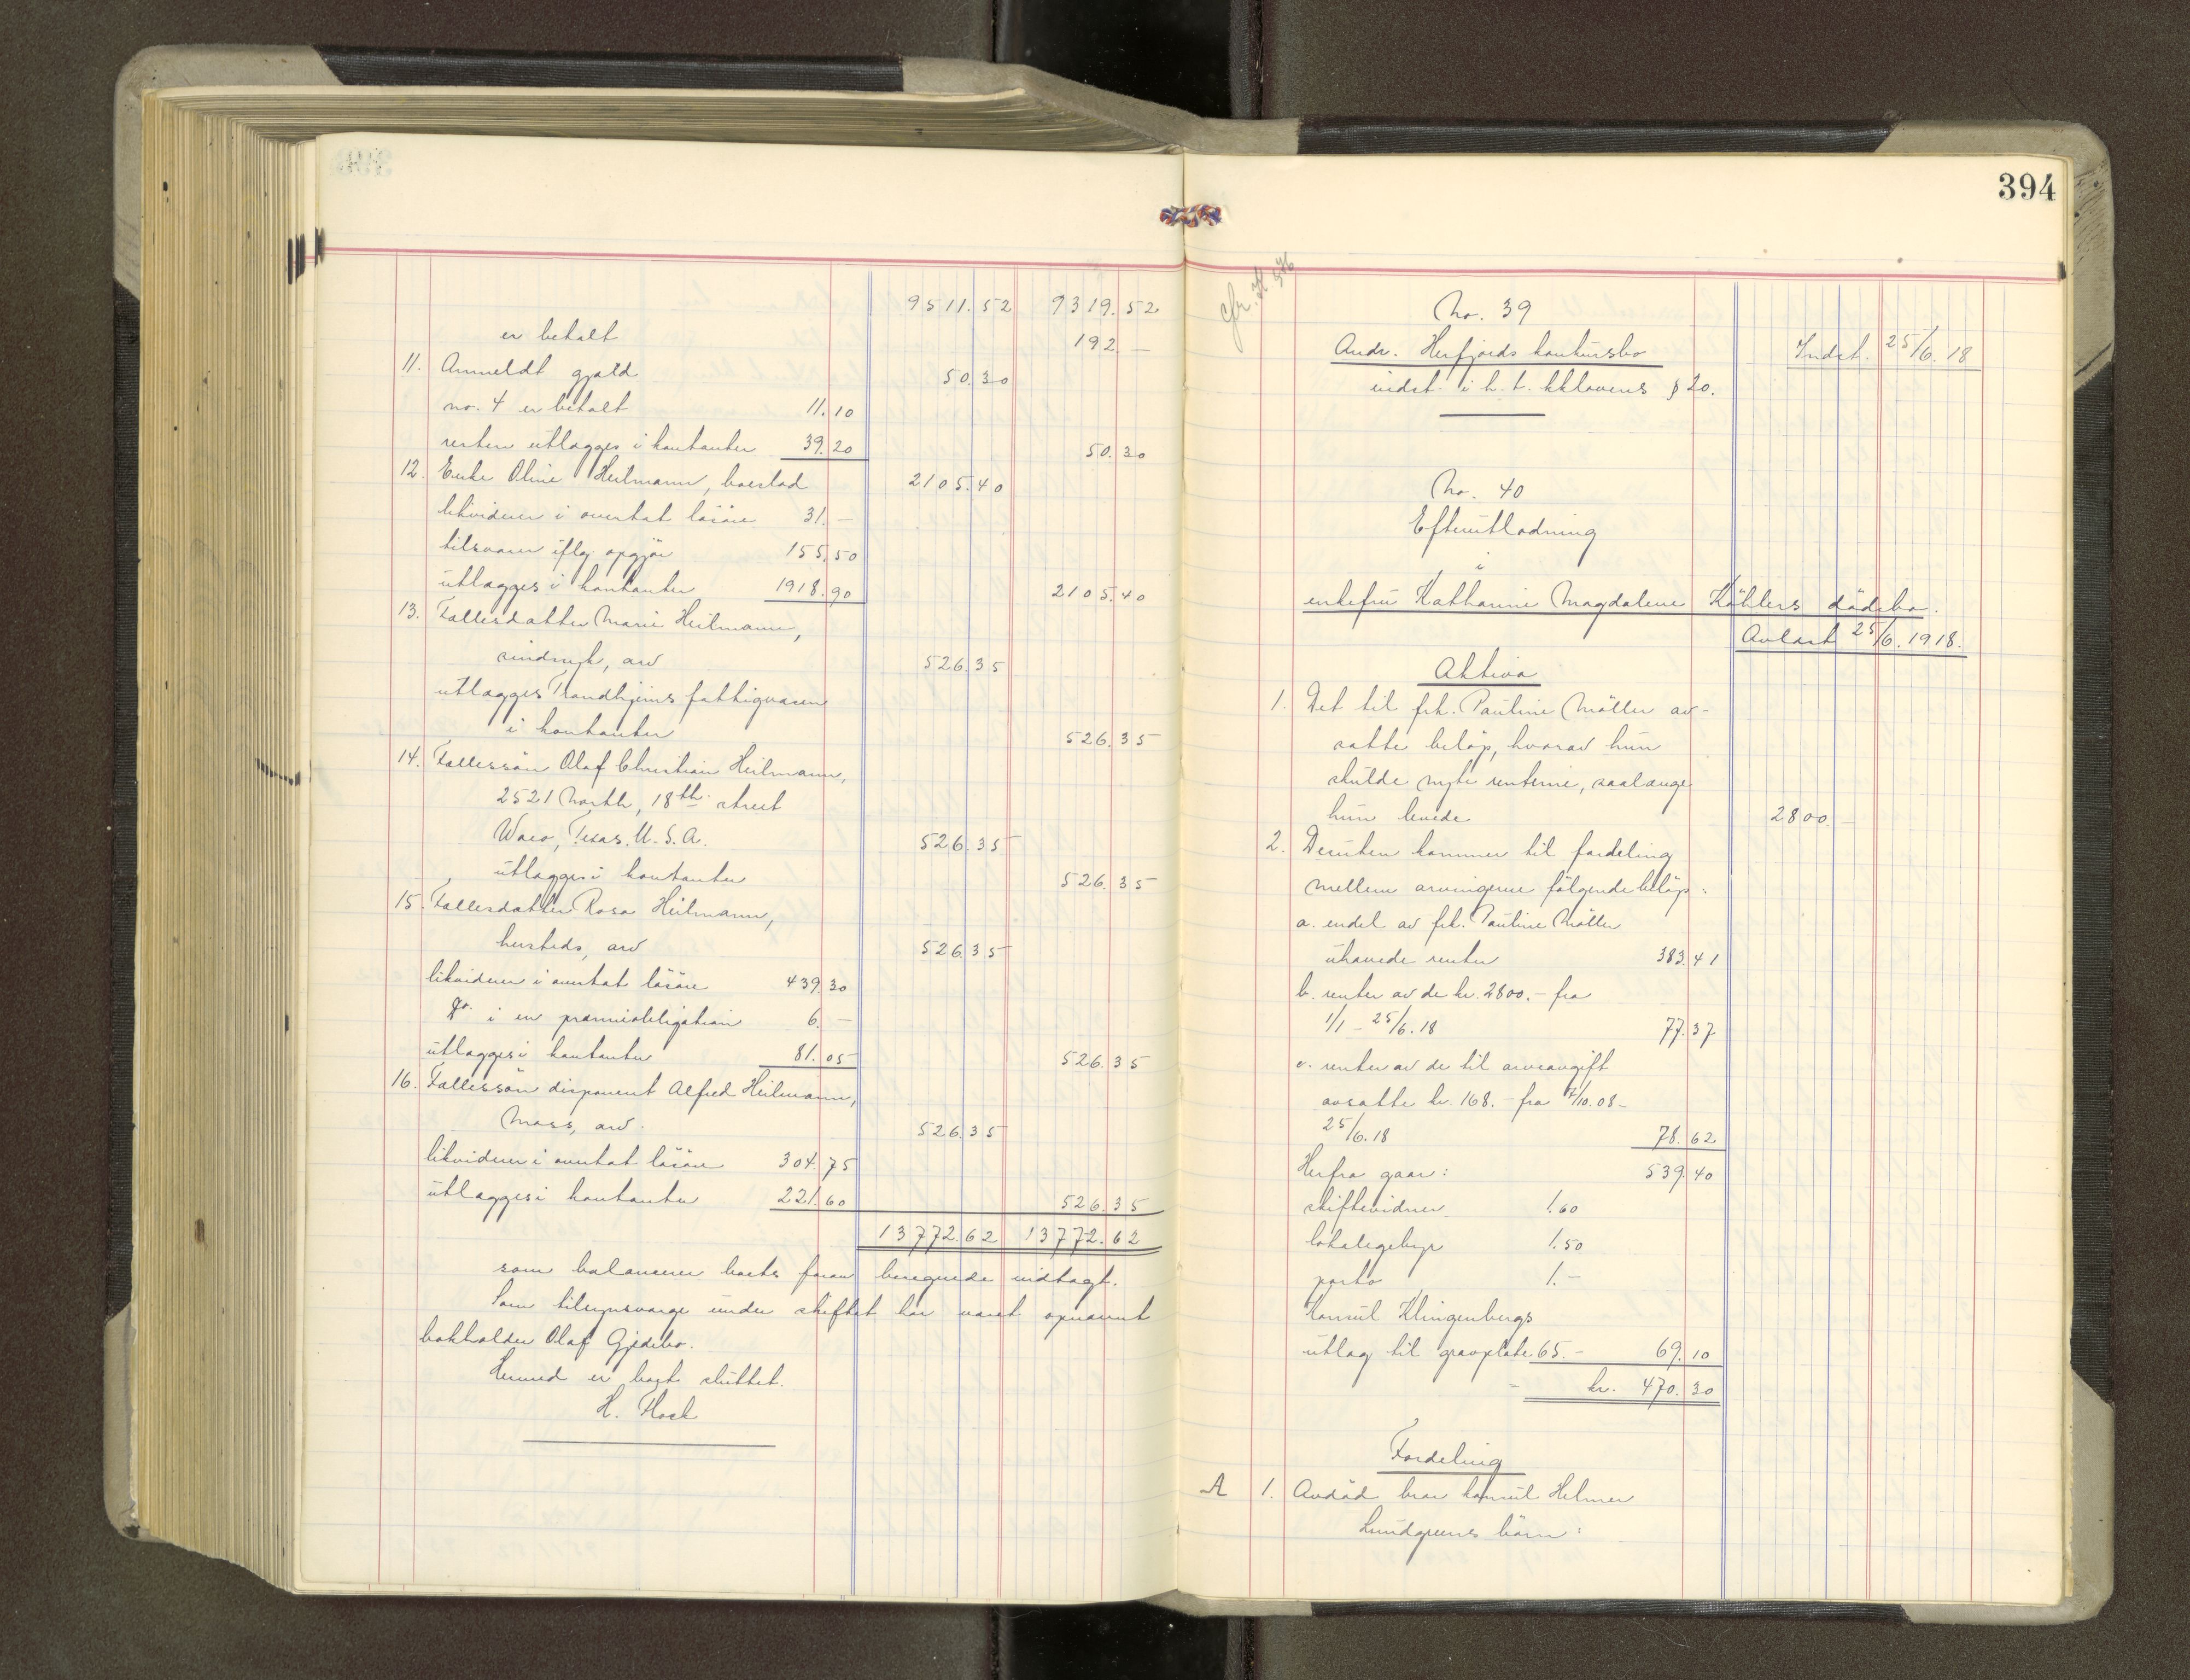 9511.52 9319.52
er betalt 192. —
11. Anmeldt gjæld 50.30
no. 4 er betalt 11.10
resten utlægges i kontanter 39.20 50.30
12. Enke Oline Heilmann, boeslod 2105.40
likviderer i overtat lösöre 31. —
tilsvarer iflg opgjör 155.50
utlægges i kontanter 1918.90 2105.40
13. Fællesdatter Marie Heilmann,
sindssyk, arv 526.35
utlægges Trondhjems fattigvæsen
i kontanter 526.35
14. Fællessön Olaf Christian Heilmann,
2521 North, 18th street
Waco, Texas. U.S.A. 526.35
utlægges i kontanter 526.35
15. Fællesdatter Rosa Heilmann,
hersteds, arv 526.35
likviderer i overtat lösöre 439.30
do. i en præmieobligation 6. —
utlægges i kontanter 81.05 526.35
16. Fællessön disponent Alfred Heilmann,
Moss, arv. 526.35
likviderer i overtat lösöre 304.75
utlægges i kontanter 221.60 526.35
13772.62 13772.62
som balancerer boets foran beregnede indtægt.
Som tilsynsværge under skiftet har været opnævnt
bokholder Olaf Gjedebo.
Hermed er boet sluttet.
H. Flock
394
cfr. H 546
No. 39
Andr. Herfjords konkursbo Indst. 25/6.18
indst. i h. t. kklovens § 20.
No. 40
Efterutlodning
i
enkefru Kathrine Magdalene Köhlers dödsbo.
Avlæst 25/6.1918.
Aktiva
1. Det til frk. Pauline Möller av-
satte belöp, hvorav hun
skulde nyte renterne, saalænge
hun levede 2800. —
2. Desuten kommer til fordeling
mellem arvingerne fölgende belöp:
a. endel av frk. Pauline Möller
uhævede renter 383.41
b. renter av de kr. 2800.– fra
1/1 – 25/6.18 77.37
c. renter av de til arveavgift
avsatte kr. 168.– fra 7/10.08–
25/6.18 78.62
Herfra gaar: 539.40
skiftevidner 1.60
lokalegebyr 1.50
porto 1.–
Konsul Klingenbergs
utlæg til gravplate 65.– 69.10
= kr. 470.30
Fordeling
A 1. Avdöd bror konsul Helmer
Lundgreens börn: